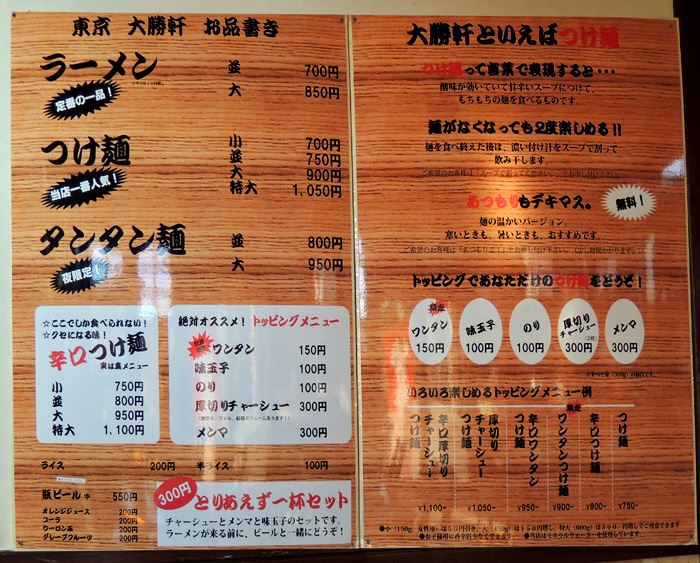 東京 大勝軒 お品書き
ラーメン
定番の一品！
並 700円
大 850円
つけ麺
当店一番人気！
小 700円
並 750円
大 900円
特大 1,050円
タンタン麺
夜限定！
並 800円
大 950円
☆ここでしか食べられない！
☆クセになる味！
辛口つけ麺
実は裏メニュー
小 750円
並 800円
大 950円
特大 1,100円
絶対オススメ！トッピングメニュー
ワンタン 150円
味玉子 100円
のり 100円
厚切りチャーシュー 300円
メンマ 300円
ライス 200円
半ライス 100円
瓶ビール 中 550円
オレンジジュース 200円
コーラ 200円
ウーロン茶 200円
グレープフルーツ 200円
300円
とりあえず一杯セット
チャーシューとメンマと味玉子のセットです。
ラーメンが来る前に、ビールと一緒にどうぞ！
大勝軒といえばつけ麺
つけ麺って言葉で表現すると・・・
酸味が効いていて甘辛いスープにつけて、
もちもちの麺を食べるものです。
麺がなくなっても2度楽しめる！！
麺を食べ終えた後は、濃い付け汁をスープで割って
飲み干します。
ご希望のお客様は「スープで割ってください。」とお申し付け下さい。
あつもりもデキマス。
無料！
麺の温かいバージョン。
寒いときも、暑いときも、おすすめです。
ご希望のお客様は「あつもりで！」とお申し付け下さい。（少し時間かかります。）
トッピングであなただけのつけ麺をどうぞ！
限定
ワンタン
150円
味玉子
100円
のり
100円
厚切り
チャーシュー
(2枚)
300円
メンマ
300円
いろいろ楽しめるトッピングメニュー例
つけ麺
¥750-
辛口つけ麺
¥800-
限定
ワンタンつけ麺
¥900-
辛口ワンタンつけ麺
¥950-
厚切りチャーシューつけ麺
¥1,050-
辛口厚切りチャーシューつけ麺
¥1,100-
●小（150g、女性用）は50円引き、大（450g）は150円増し、特大（600g）は300円増しでご用意できます
●お子様用に香辛料少なくできます。 ●当店はミネラルウォーターを使用しています。